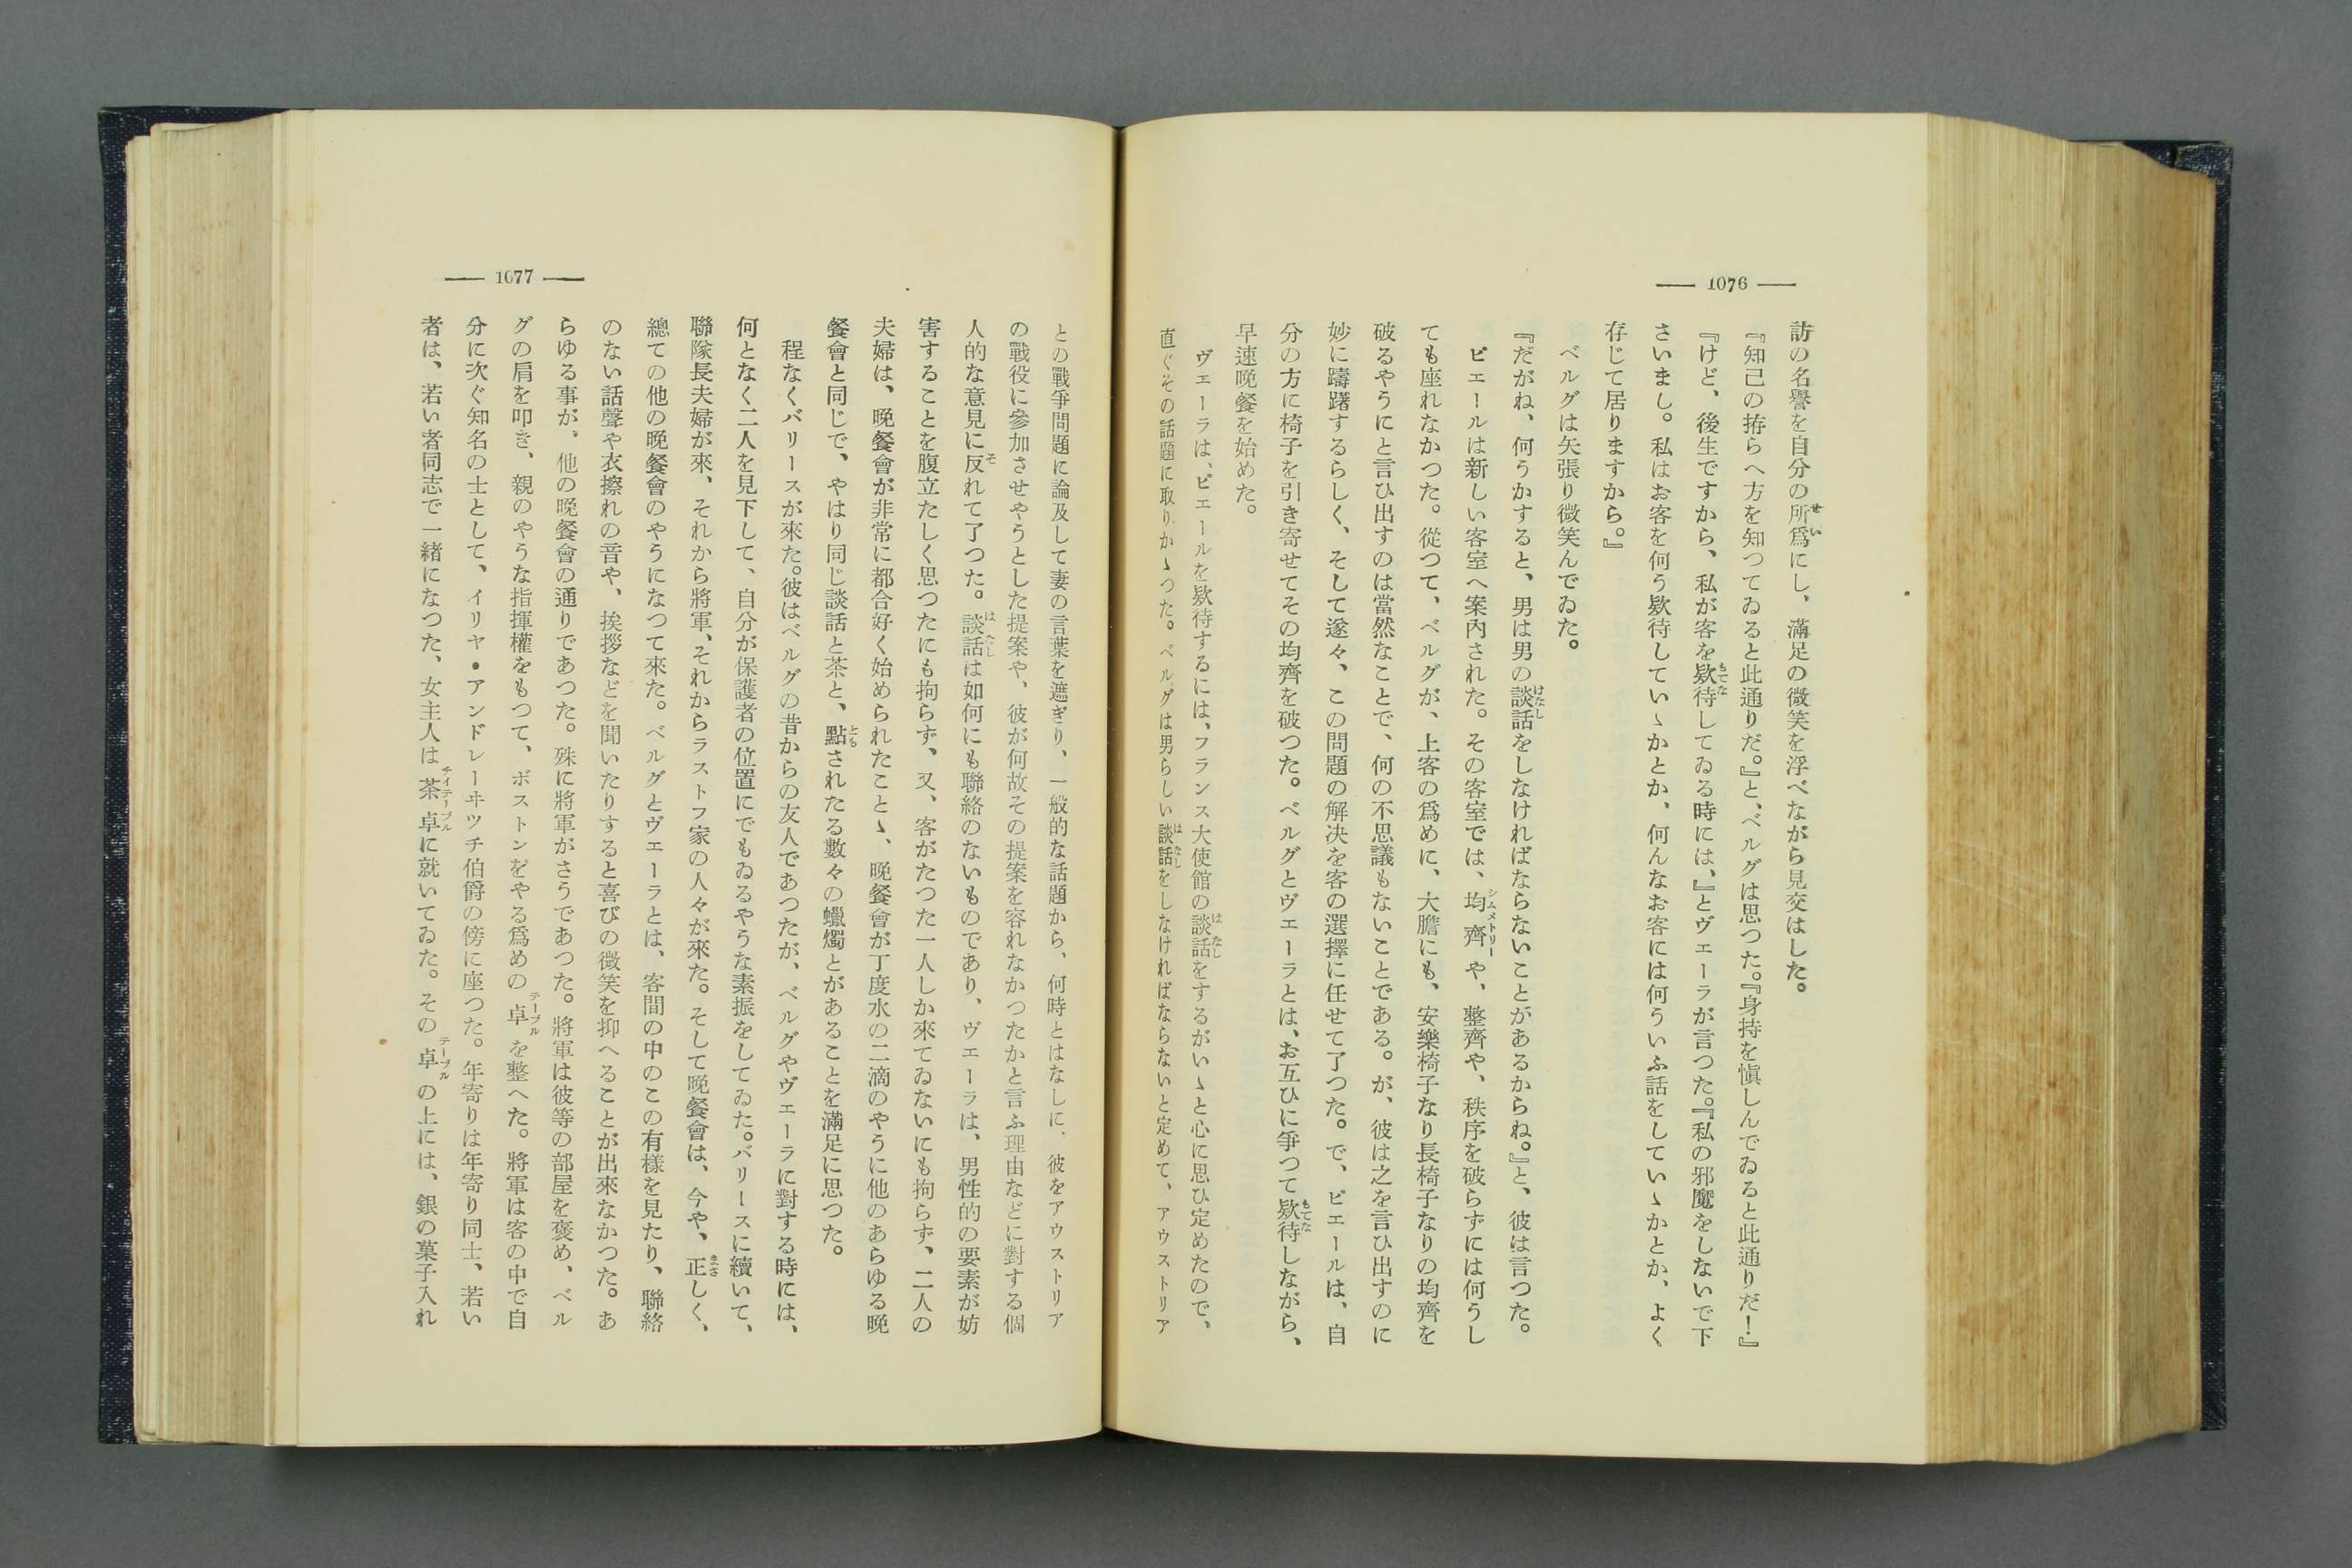 — 1076 —
訪の名譽を自分の所爲にし、滿足の微笑を浮べながら見交はした。
『知己の拵らへ方を知つてゐると此通りだ。』と、ベルグは思つた。『身持を愼しんでゐると此通りだ！』
『けど、後生ですから、私が客を欵待してゐる時には、』とヴェーラが言つた。『私の邪魔をしないで下
さいまし。私はお客を何う欵待していゝかとか、何んなお客には何ういふ話をしていゝかとか、よく
存じて居りますから。』
ベルグは矢張り微笑んでゐた。
『だがね、何うかすると、男は男の談話をしなければならないことがあるからね。』と、彼は言つた。
ピエールは新しい客室へ案内された。その客室では、均齊や、整齊や、秩序を破らずには何うし
ても座れなかつた。從つて、ベルグが、上客の爲めに、大膽にも、安樂椅子なり長椅子なりの均齊を
破るやうにと言ひ出すのは當然なことで、何の不思議もないことである。が、彼は之を言ひ出すのに
妙に躊躇するらしく、そして遂々、この問題の解決を客の選擇に任せて了つた。で、ピエールは、自
分の方に椅子を引き寄せてその均齊を破つた。ベルグとヴェーラとは、お互ひに爭つて欵待しながら、
早速晩餐を始めた。
ヴェーラは、ピエールを欵待するには、フランス大使館の談話をするがいゝと心に思ひ定めたので、
直ぐその話題に取りかゝつた。ベルグは男らしい談話をしなければならないと定めて、アウストリア
— 1077 —
との戰爭問題に論及して妻の言葉を遮ぎり、一般的な話題から、何時とはなしに、彼をアウストリア
の戰役に參加させやうとした提案や、彼が何故その提案を容れなかつたかと言ふ理由などに對する個
人的な意見に反れて了つた。談話は如何にも聯絡のないものであり、ヴェーラは、男性的の要素が妨
害することを腹立たしく思つたにも拘らず、又、客がたつた一人しか來てゐないにも拘らず、二人の
夫婦は、晩餐會が非常に都合好く始められたことゝ、晩餐會が丁度水の二滴のやうに他のあらゆる晩
餐會と同じで、やはり同じ談話と茶と、點されたる數々の蠟燭とがあることを滿足に思つた。
程なくバリースが來た。彼はベルグの昔からの友人であつたが、ベルグやヴェーラに對する時には、
何となく二人を見下して、自分が保護者の位置にでもゐるやうな素振をしてゐた。バリースに續いて、
聯隊長夫婦が來、それから將軍、それからラストフ家の人々が來た。そして晩餐會は、今や、正しく、
總ての他の晩餐會のやうになつて來た。ベルグとヴェーラとは、客間の中のこの有樣を見たり、聯絡
のない話聲や衣擦れの音や、挨拶などを聞いたりすると喜びの微笑を抑へることが出來なかつた。あ
らゆる事が、他の晩餐會の通りであつた。殊に將軍がさうであつた。將軍は彼等の部屋を褒め、ベル
グの肩を叩き、親のやうな指揮權をもつて、ボストンをやる爲めの卓を整へた。將軍は客の中で自
分に次ぐ知名の士として、イリヤ・アンドレーヰツチ伯爵の傍に座つた。年寄りは年寄り同士、若い
者は、若い者同志で一緒になつた、女主人は茶卓に就いてゐた。その卓の上には、銀の菓子入れ